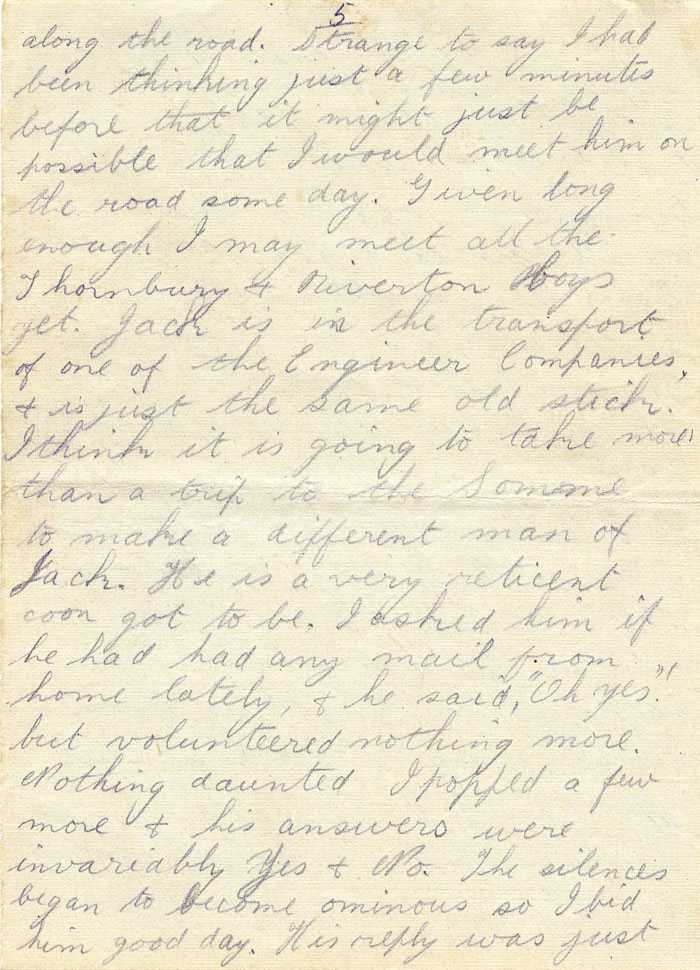 5
along the road. Strange to say I had
been thinking just a few minutes
before that it might just be
possible that I would meet him on
the road some day. Given long
enough I may meet all the
Thornbury & Riverton Boys
yet. Jack is in the transport
of one of the Engineer Companies,
& is just the same old stick.
I think it is going to take more
than a trip to the Somme
to make a different man of
Jack. He is a very reticent
coon got to be. I asked him if
he had had any mail from
home lately, & he said, "Oh yes"!
but volunteered nothing more.
Nothing daunted I popped a few
more & his answers were
invariably Yes & No. The silences
began to become ominous so I bid
him good day. His reply was just